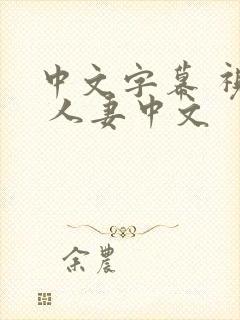 中文字幕
人妻中文
余農